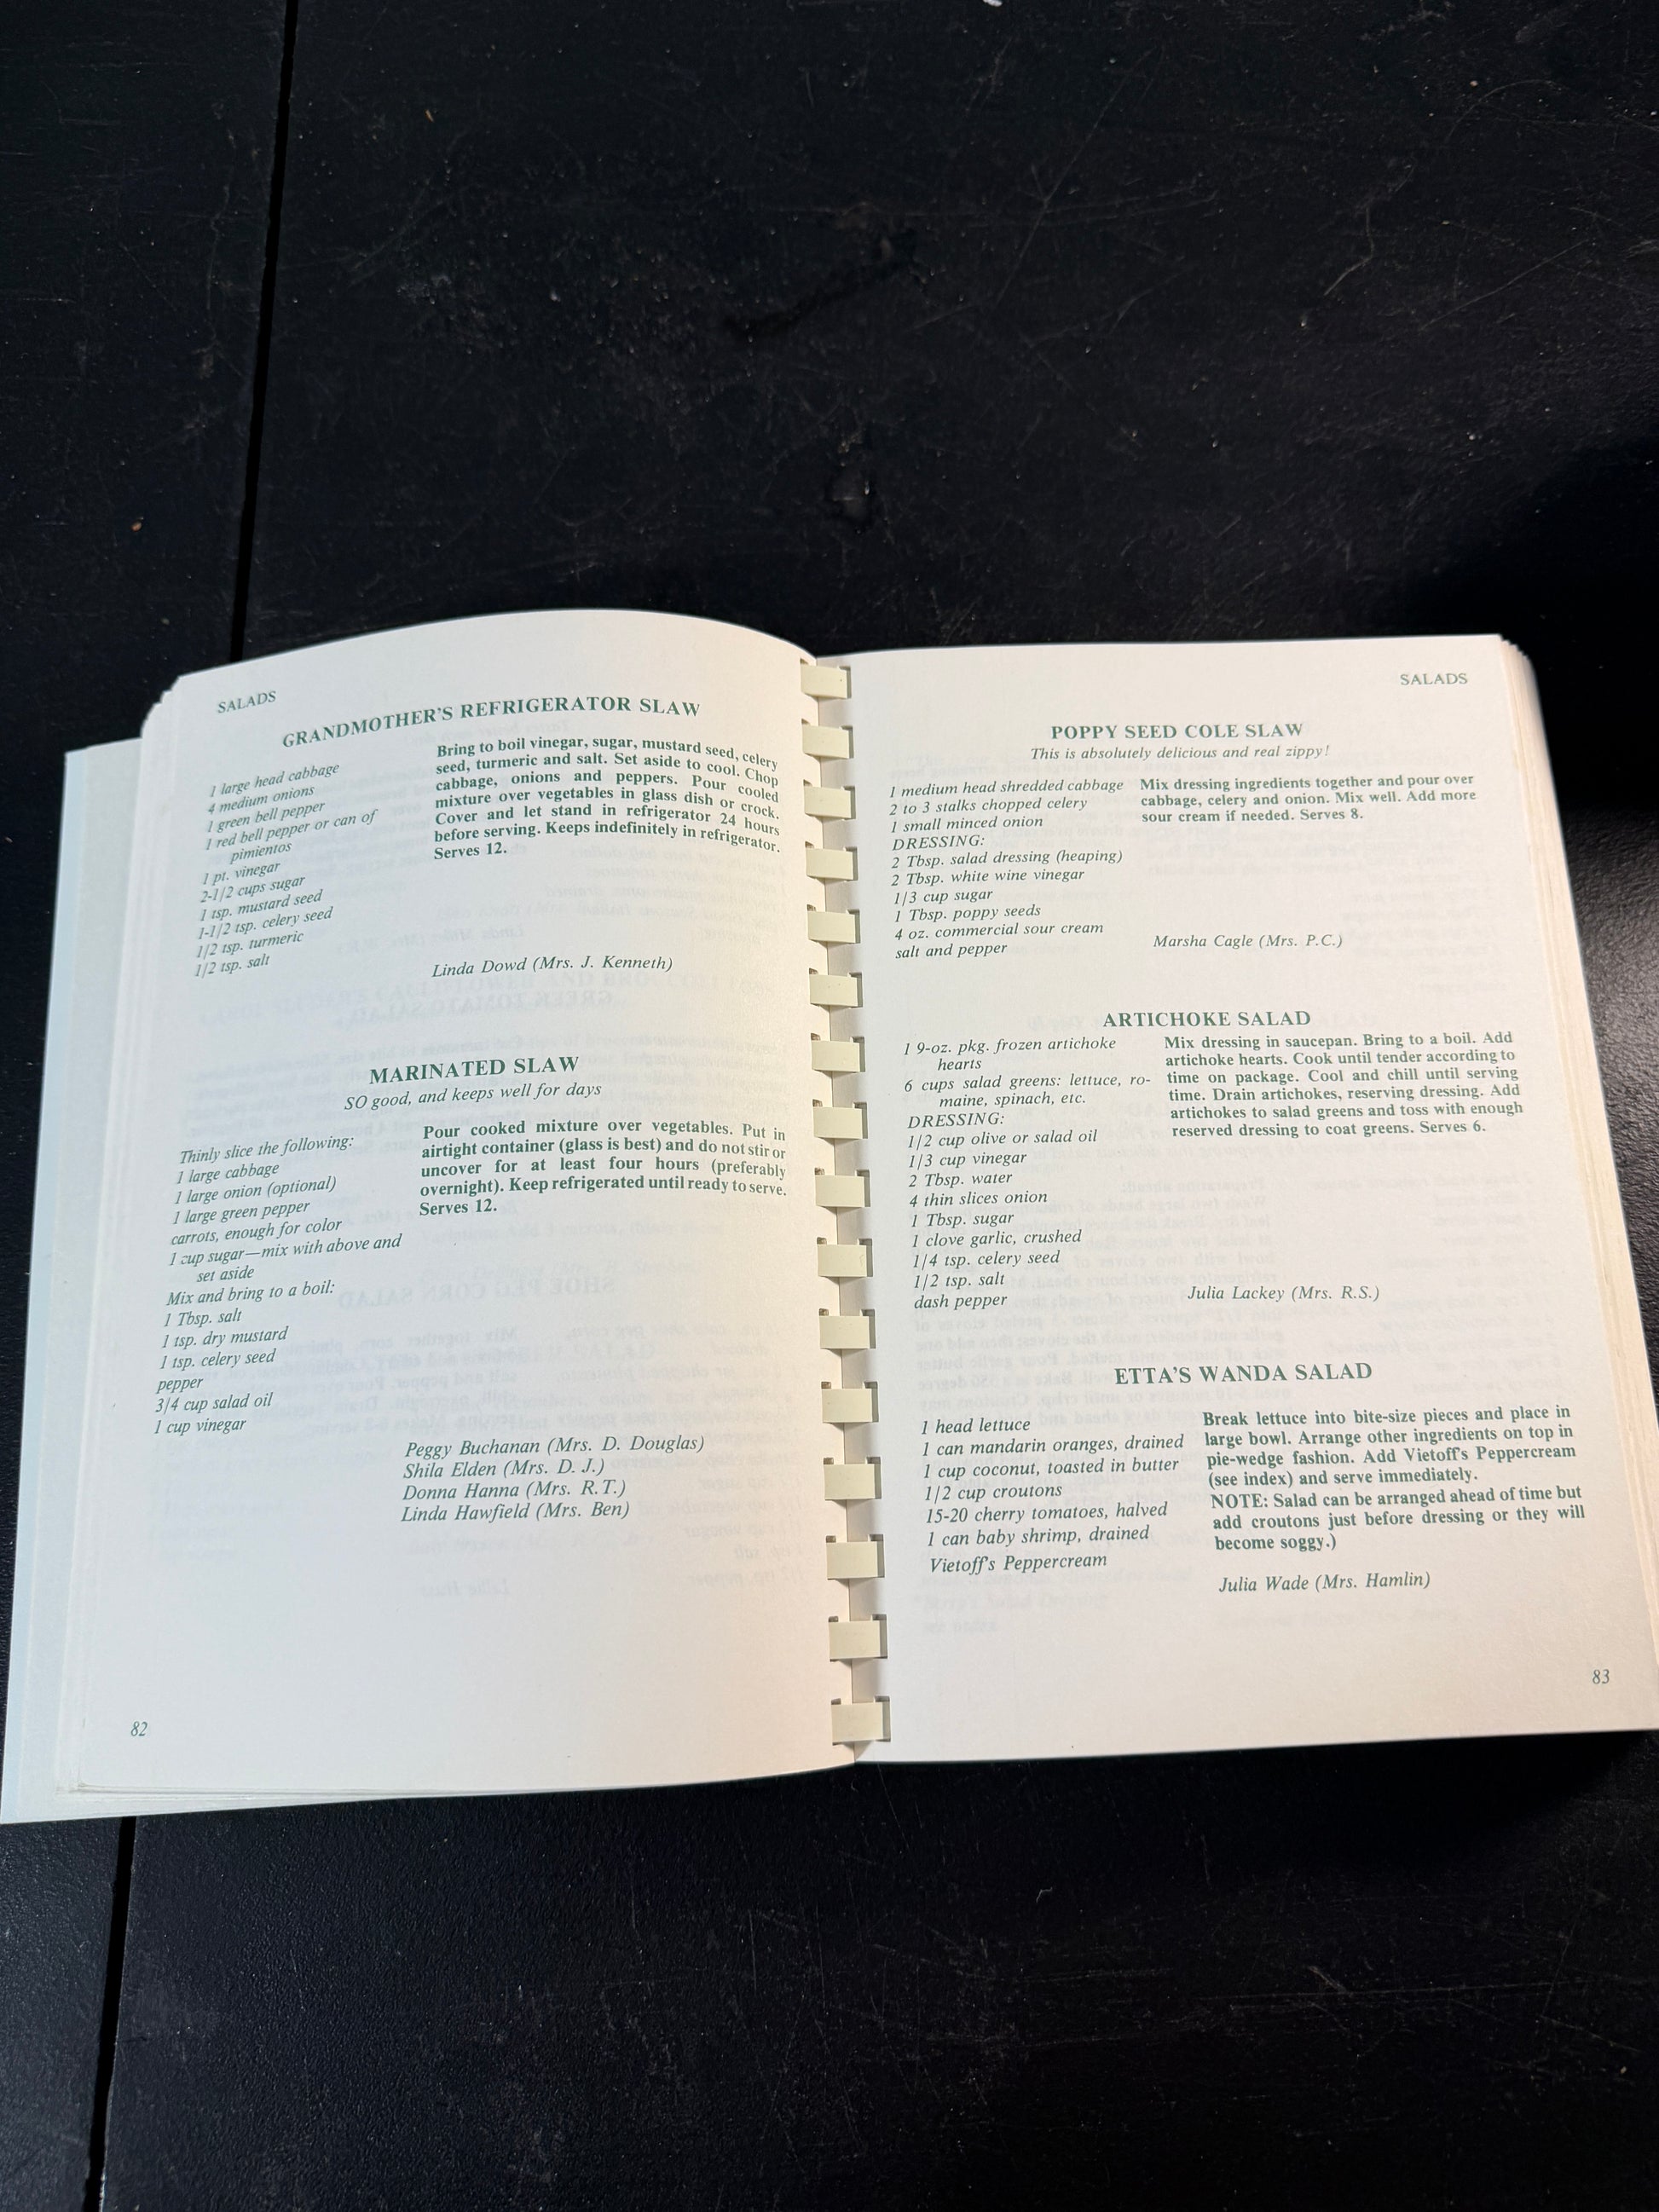 SALADS
GRANDMOTHER'S REFRIGERATOR SLAW
1 large head cabbage
4 medium onions
1 green bell pepper
1 red bell pepper or can of
pimientos
1 pt. vinegar
2-1/2 cups sugar
1 tsp. mustard seed
1-1/2 tsp. celery seed
1/2 tsp. turmeric
1/2 tsp. salt
Bring to boil vinegar, sugar, mustard seed, celery
seed, turmeric and salt. Set aside to cool. Chop
cabbage, onions and peppers. Pour cooled
mixture over vegetables in glass dish or crock.
Cover and let stand in refrigerator 24 hours
before serving. Keeps indefinitely in refrigerator.
Serves 12.
Linda Dowd (Mrs. J. Kenneth)
MARINATED SLAW
SO good, and keeps well for days
Thinly slice the following:
1 large cabbage
1 large onion (optional)
1 large green pepper
carrots, enough for color
1 cup sugar—mix with above and
set aside
Mix and bring to a boil:
1 Tbsp. salt
1 tsp. dry mustard
1 tsp. celery seed
pepper
3/4 cup salad oil
1 cup vinegar
Pour cooked mixture over vegetables. Put in
airtight container (glass is best) and do not stir or
uncover for at least four hours (preferably
overnight). Keep refrigerated until ready to serve.
Serves 12.
Peggy Buchanan (Mrs. D. Douglas)
Shila Elden (Mrs. D. J.)
Donna Hanna (Mrs. R.T.)
Linda Hawfield (Mrs. Ben)
82
SALADS
POPPY SEED COLE SLAW
This is absolutely delicious and real zippy!
1 medium head shredded cabbage
2 to 3 stalks chopped celery
1 small minced onion
DRESSING:
2 Tbsp. salad dressing (heaping)
2 Tbsp. white wine vinegar
1/3 cup sugar
1 Tbsp. poppy seeds
4 oz. commercial sour cream
salt and pepper
Mix dressing ingredients together and pour over
cabbage, celery and onion. Mix well. Add more
sour cream if needed. Serves 8.
Marsha Cagle (Mrs. P.C.)
ARTICHOKE SALAD
1 9-oz. pkg. frozen artichoke
hearts
6 cups salad greens: lettuce, ro-
maine, spinach, etc.
DRESSING:
1/2 cup olive or salad oil
1/3 cup vinegar
2 Tbsp. water
4 thin slices onion
1 Tbsp. sugar
1 clove garlic, crushed
1/4 tsp. celery seed
1/2 tsp. salt
dash pepper
Mix dressing in saucepan. Bring to a boil. Add
artichoke hearts. Cook until tender according to
time on package. Cool and chill until serving
time. Drain artichokes, reserving dressing. Add
artichokes to salad greens and toss with enough
reserved dressing to coat greens. Serves 6.
Julia Lackey (Mrs. R.S.)
ETTA'S WANDA SALAD
1 head lettuce
1 can mandarin oranges, drained
1 cup coconut, toasted in butter
1/2 cup croutons
15-20 cherry tomatoes, halved
1 can baby shrimp, drained
Vietoff's Peppercream
Break lettuce into bite-size pieces and place in
large bowl. Arrange other ingredients on top in
pie-wedge fashion. Add Vietoff's Peppercream
(see index) and serve immediately.
NOTE: Salad can be arranged ahead of time but
add croutons just before dressing or they will
become soggy.)
Julia Wade (Mrs. Hamlin)
83